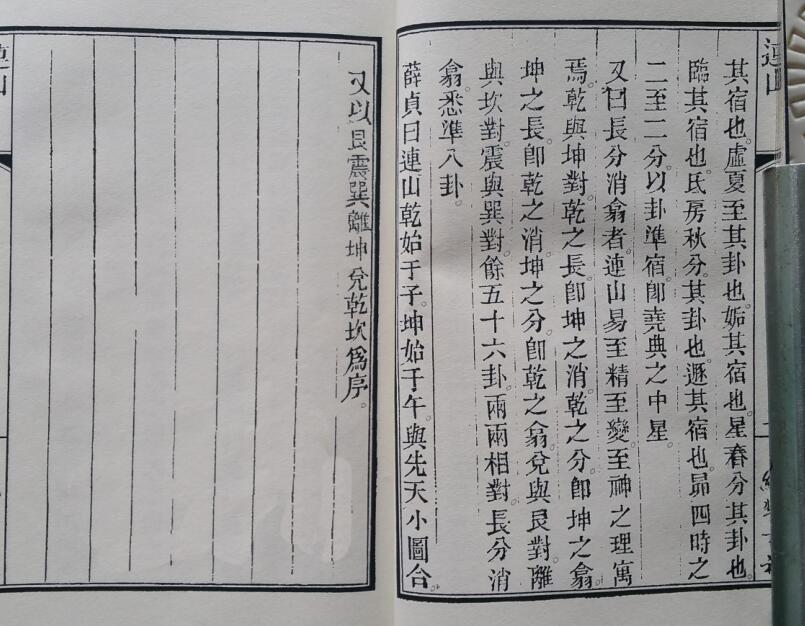 連山
其宿也。虛夏至其卦也。姤其宿也。星春分其卦也。
臨其宿也。氐房秋分。其卦也。遯其宿也。昴四時之
二至二分。以卦準宿。卽堯典之中星。
又曰長分消翕者。連山易至精至變。至神之理寓
焉。乾與坤對。乾之長。卽坤之消。乾之分。卽坤之翕。
坤之長。卽乾之消。坤之分。卽乾之翕。兌與艮對。離
與坎對。震與巽對。餘五十六卦。兩兩相對。長分消
翕。悉準八卦。
薛貞曰連山乾始于子。坤始于午。與先天小圖合。
又以艮震巽離坤兌乾坎爲序。